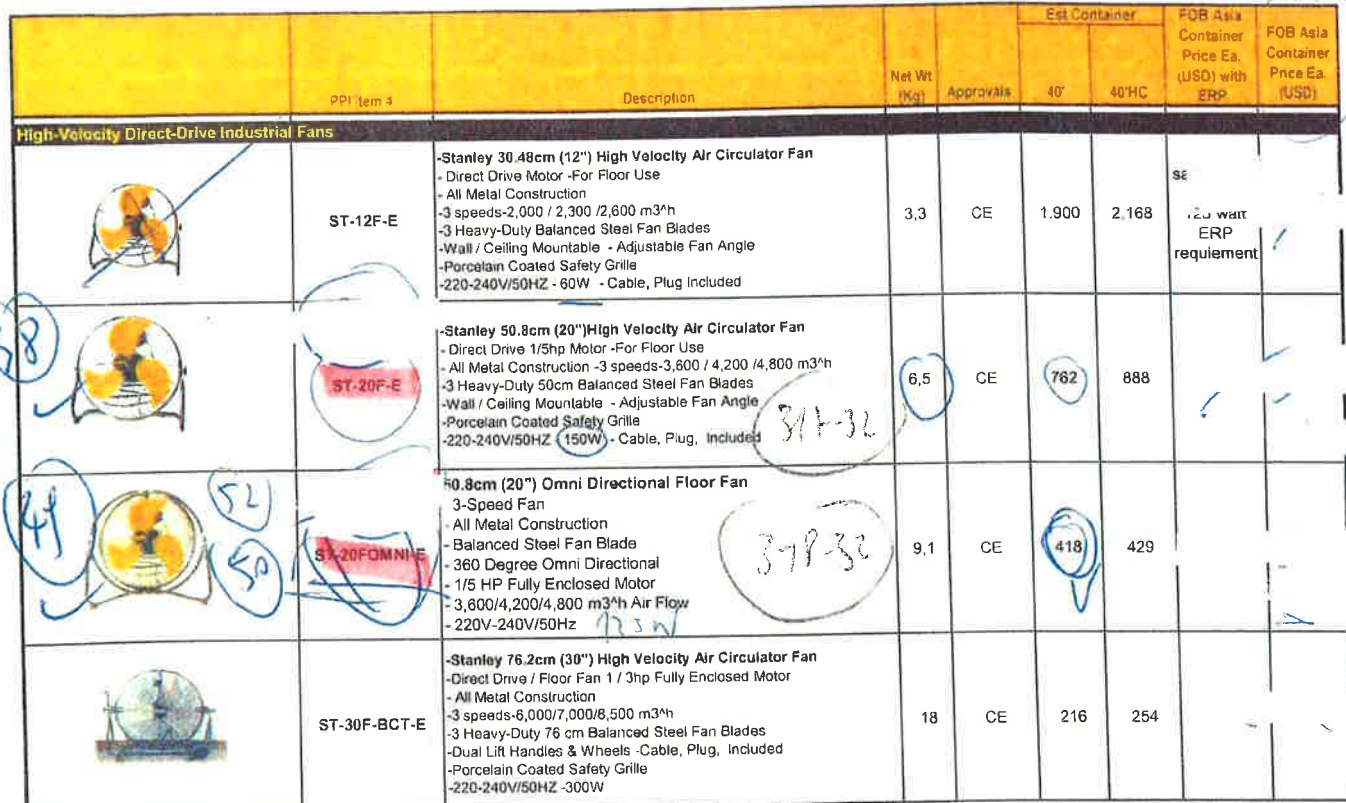 Est Container
FOB Asia Container Price Ea. (USD) with ERP
FOB Asia Container Price Ea. (USD)
PPI Item #
Description
Net Wt (Kg)
Approvals
40'
40'HC
High-Velocity Direct-Drive Industrial Fans
ST-12F-E
-Stanley 30.48cm (12") High Velocity Air Circulator Fan
- Direct Drive Motor -For Floor Use
- All Metal Construction
-3 speeds-2,000 / 2,300 /2,600 m3^h
-3 Heavy-Duty Balanced Steel Fan Blades
-Wall / Ceiling Mountable - Adjustable Fan Angle
-Porcelain Coated Safety Grille
-220-240V/50HZ - 60W - Cable, Plug Included
3,3
CE
1.900
2.168
watt
ERP
requiement
ST-20F-E
-Stanley 50.8cm (20")High Velocity Air Circulator Fan
- Direct Drive 1/5hp Motor -For Floor Use
- All Metal Construction -3 speeds-3,600 / 4,200 /4,800 m3^h
-3 Heavy-Duty 50cm Balanced Steel Fan Blades
-Wall / Ceiling Mountable - Adjustable Fan Angle
-Porcelain Coated Safety Grille
-220-240V/50HZ 150W - Cable, Plug, Included
6,5
CE
762
888
52
50
ST-20FOMNI-E
50.8cm (20") Omni Directional Floor Fan
3-Speed Fan
- All Metal Construction
- Balanced Steel Fan Blade
- 360 Degree Omni Directional
- 1/5 HP Fully Enclosed Motor
- 3,600/4,200/4,800 m3^h Air Flow
- 220V-240V/50Hz
378-32
9,1
CE
418
429
ST-30F-BCT-E
-Stanley 76.2cm (30") High Velocity Air Circulator Fan
-Direct Drive / Floor Fan 1 / 3hp Fully Enclosed Motor
- All Metal Construction
-3 speeds-6,000/7,000/8,500 m3^h
-3 Heavy-Duty 76 cm Balanced Steel Fan Blades
-Dual Lift Handles & Wheels -Cable, Plug, Included
-Porcelain Coated Safety Grille
-220-240V/50HZ -300W
18
CE
216
254